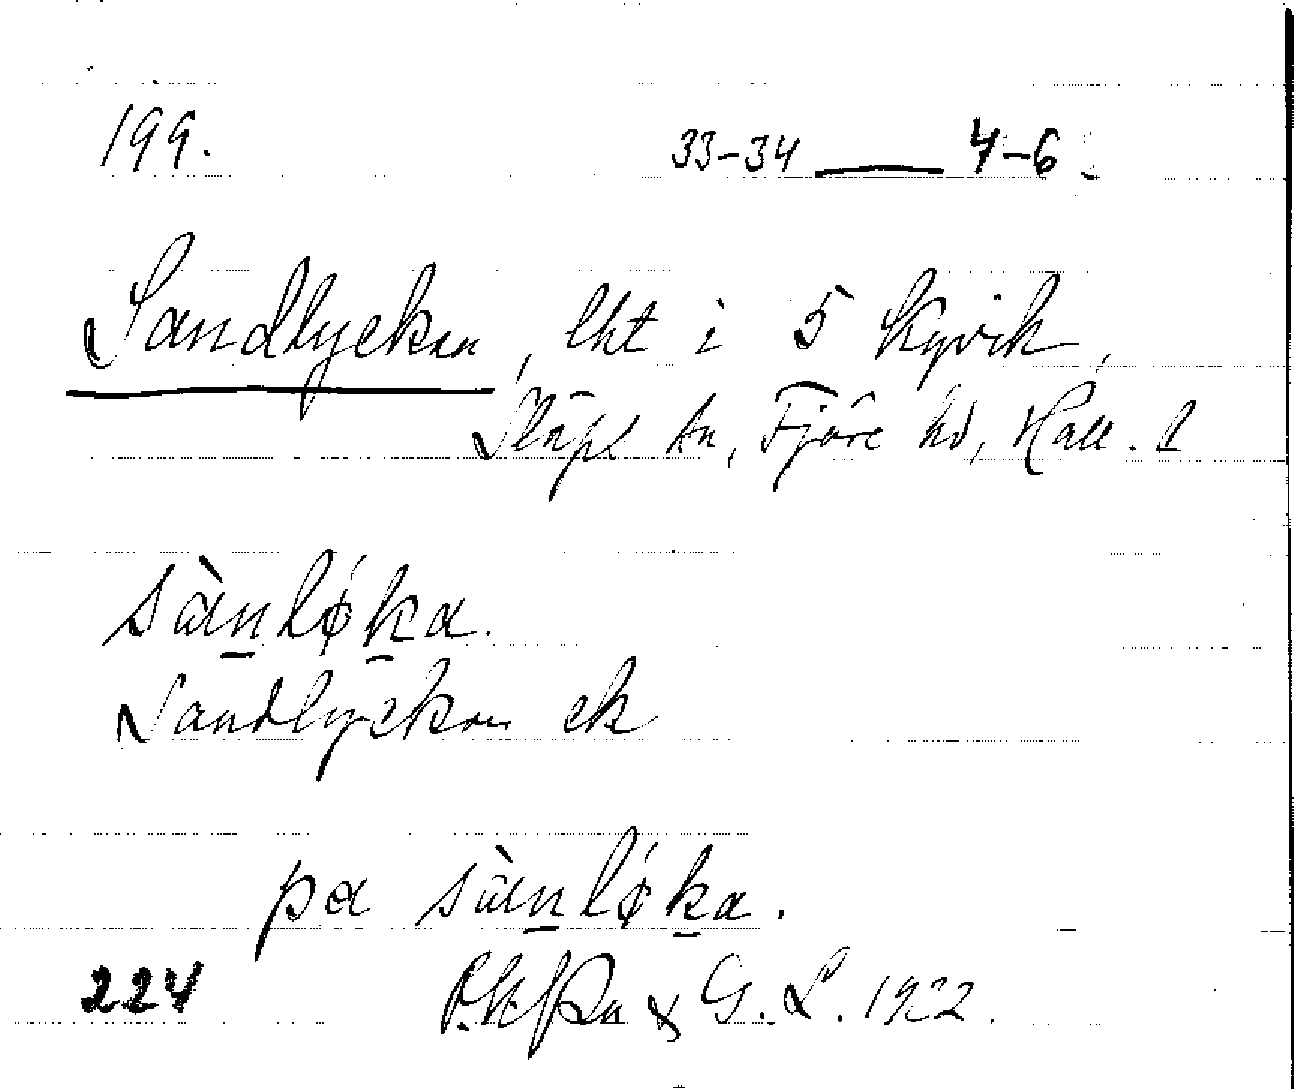 199. 33-34 — 4-6
Sandlyckan, lht i 5 Kyvik,
Släps sn, Fjäre hd, Hall. l
sànløka.
Sandlyckan ek
pa sànløka.
224 & G. L. 1922.